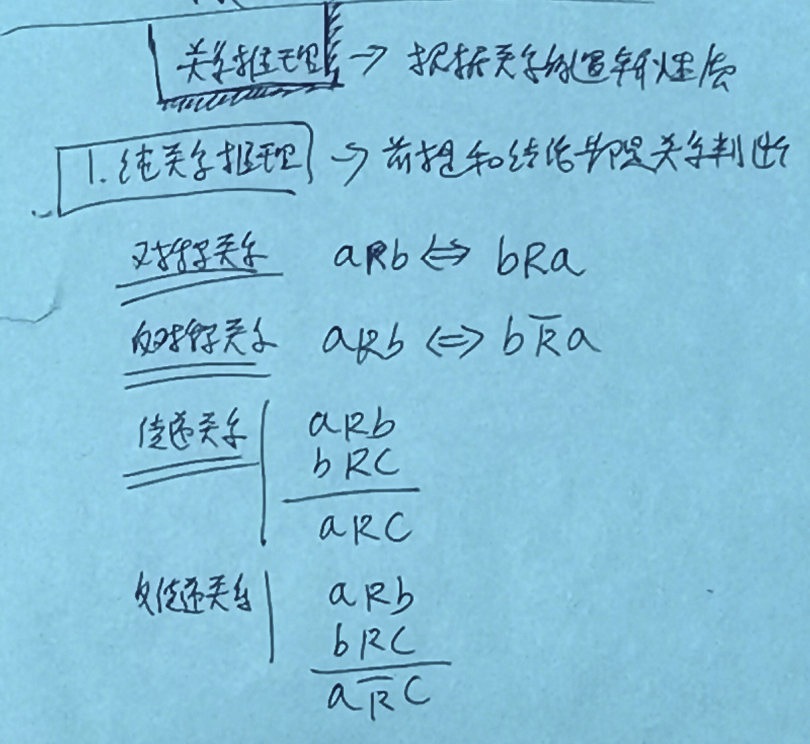 关系推理 → 根据关系的逻辑性质
1. 纯关系推理 → 前提和结论都是关系判断
对称关系 aRb ⇔ bRa
反对称关系 aRb ⇔ bR̅a
传递关系 aRb
bRC
aRC
反传递关系 aRb
bRC
aR̅C